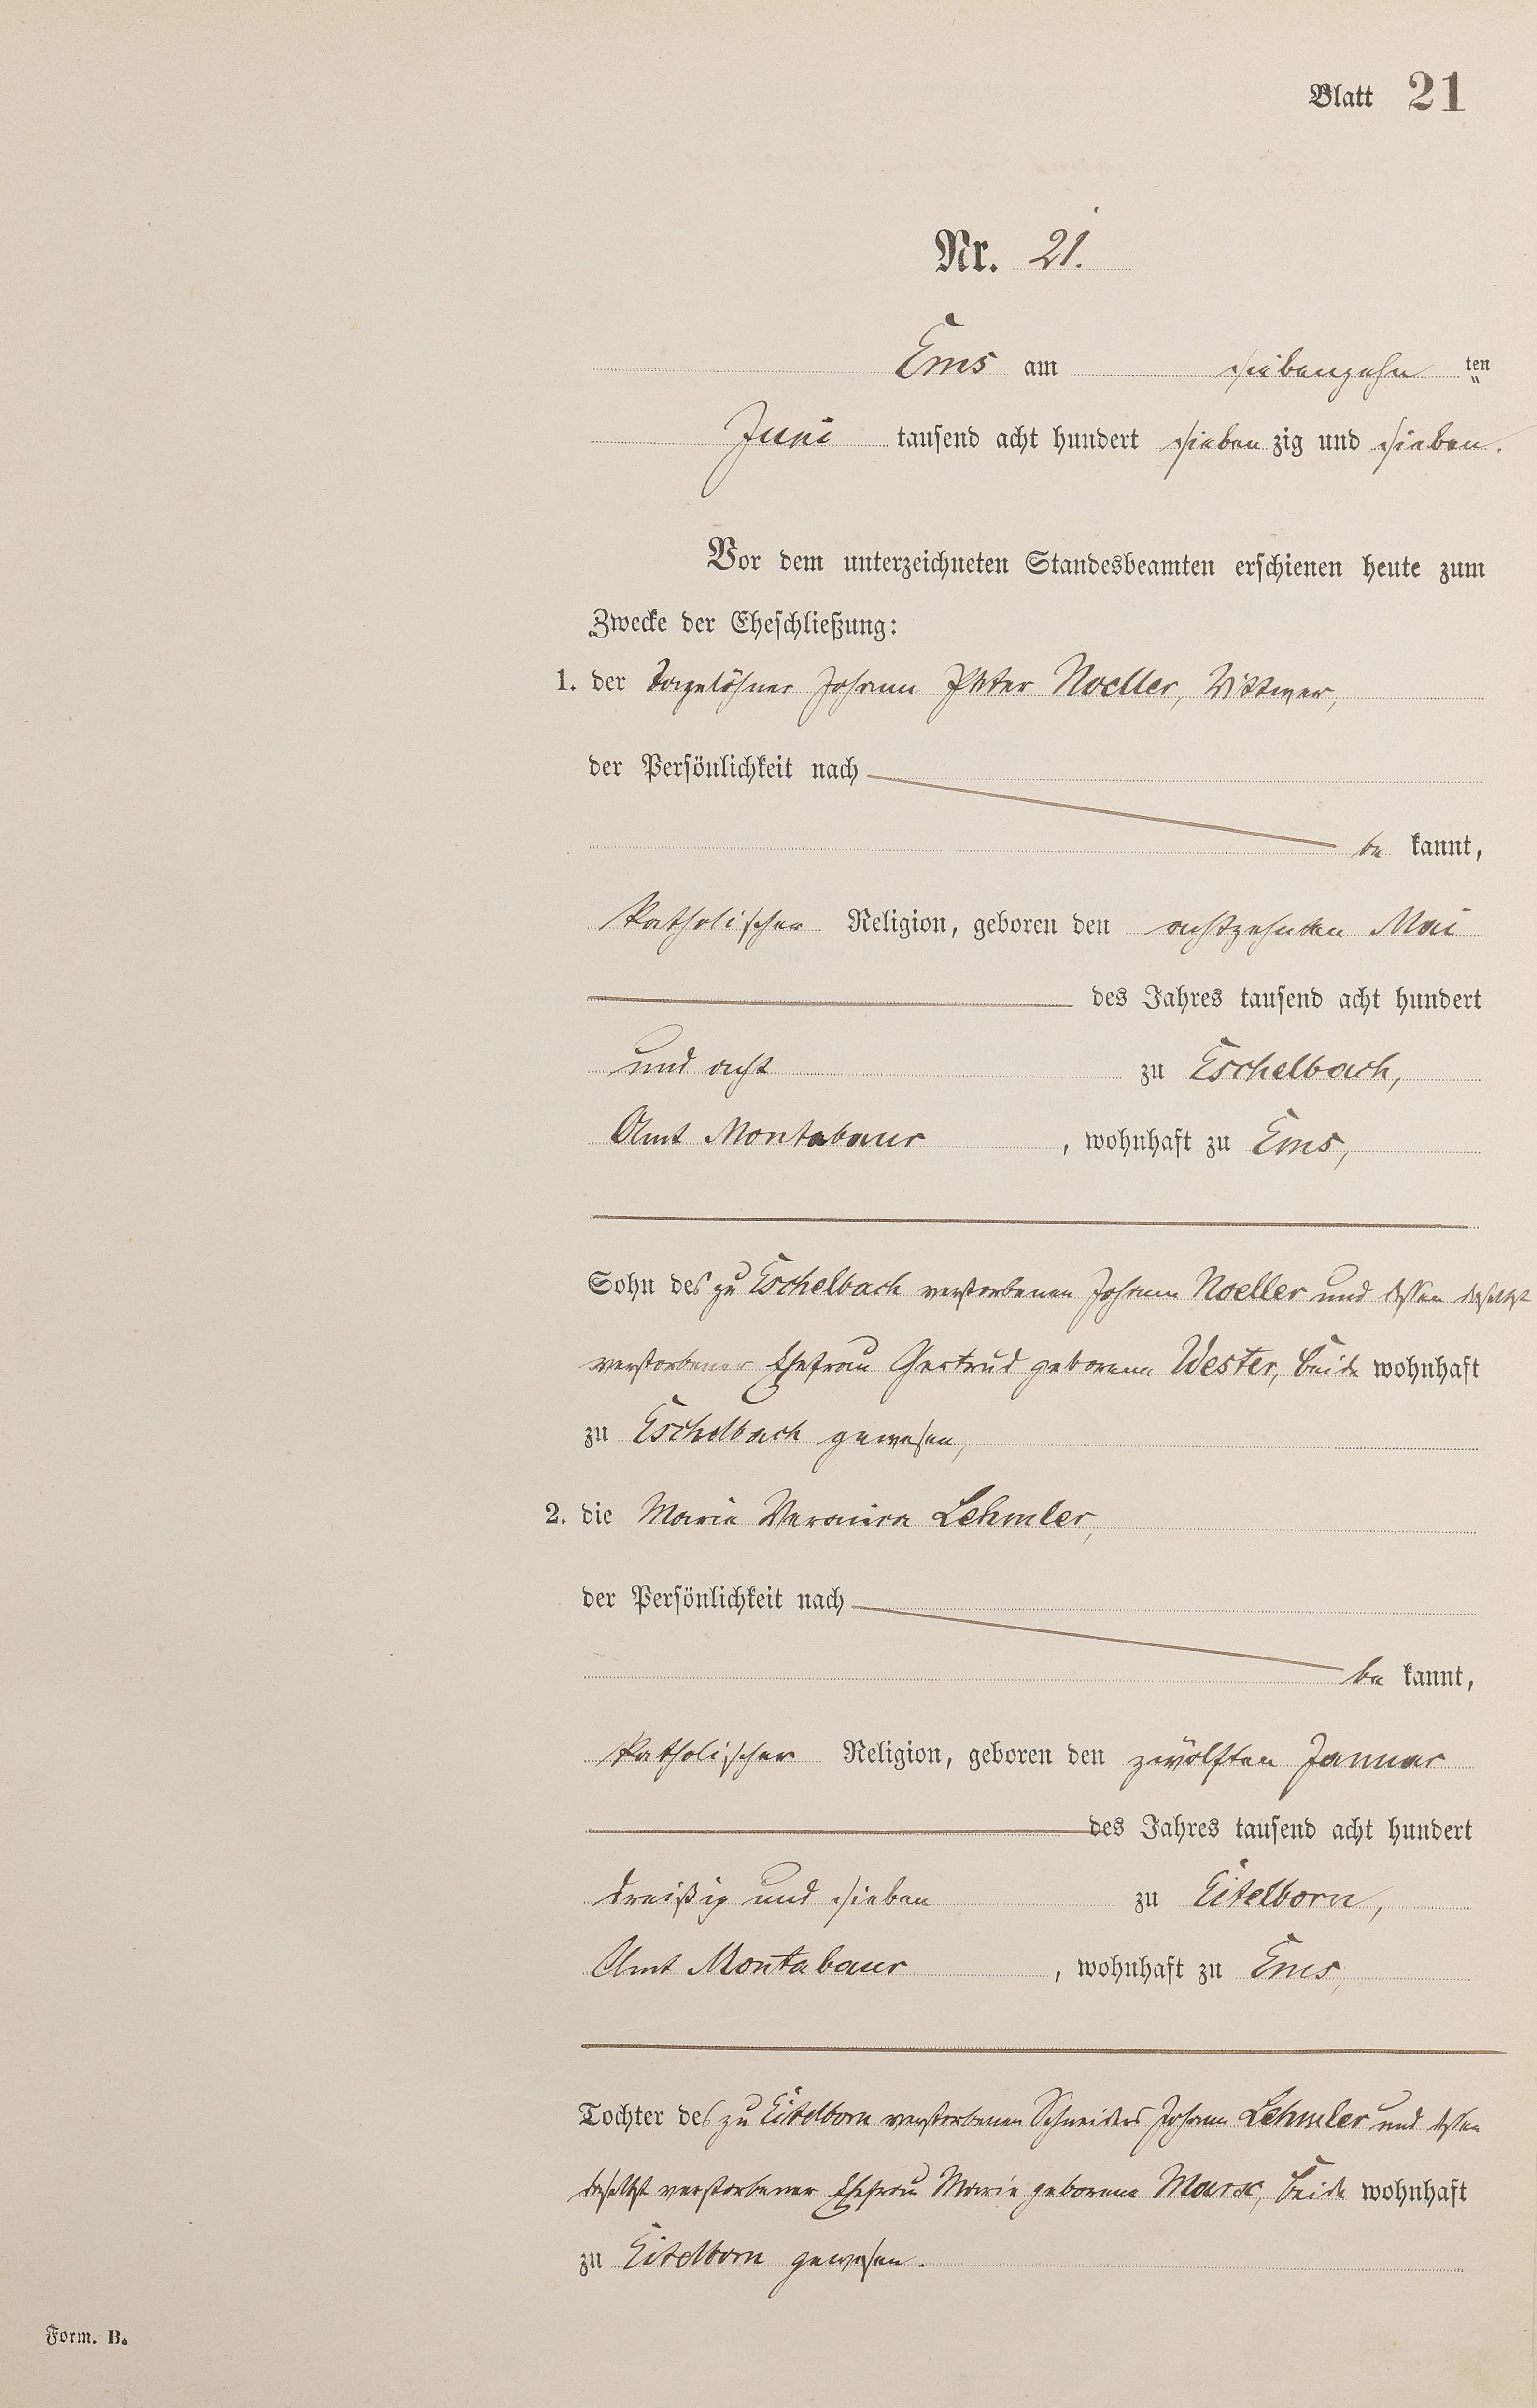 Blatt 21
Nr. 21.
Ems am siebenzehn ten
Juni tausend acht hundert sieben zig und sieben.
Vor dem unterzeichneten Standesbeamten erschienen heute zum
Zwecke der Eheschließung:
1. der Tagelöhner Johann Peter Noeller, Wittwer,
der Persönlichkeit nach
be kannt,
katholischer Religion, geboren den achtzehnten Mai
des Jahres tausend acht hundert
und acht zu Eschelbach,
Amt Montabaur, wohnhaft zu Ems,
Sohn des zu Eschelbach verstorbenen Johann Noeller und dessen daselbst
verstorbener Ehefrau Gertrud geborene Wester, beide wohnhaft
zu Eschelbach gewesen,
2. die Maria Veronica Lehmler,
der Persönlichkeit nach
be kannt,
katholischer Religion, geboren den zwölften Januar
des Jahres tausend acht hundert
dreißig und sieben zu Eitelborn,
Amt Montabaur, wohnhaft zu Ems,
Tochter des zu Eitelborn verstorbenen Schneiders Johann Lehmler und dessen
daselbst verstorbener Ehefrau Marie geborene Marx, beide wohnhaft
zu Eitelborn gewesen.
Form. B.